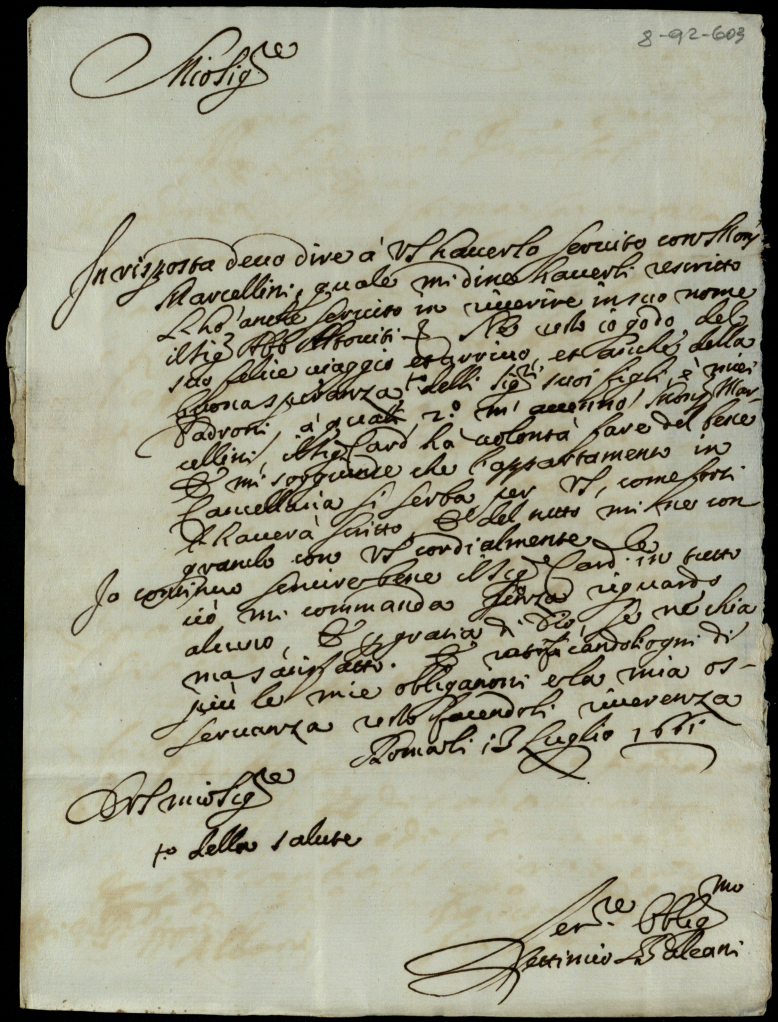 8-92-603
Mio Sig.re
In risposta deuo dire à VS hauerlo seruito con Mons.r
Marcellini, quale mi dice hauerli rescritto
L'hò anche seruito in riuerire in suo nome
il Sig.r
suo felice uiaggio et arriuo, et anche della
buona speranza delli Sig.ri suoi figli, e miei
Padroni à quali 2.o mi accenno Mons.r Mar-
cellini, il Sig.r Card. ha uolontà fare del bene
& mi soggiunse che l'appartamento in
Cancellaria si serba per VS, come forsi
l'hauerà scritto, & del tutto mi ne con
gratulo con VS cordialmente
Io continuo seruire bene il Sig.re Card. in tutto
ciò mi commanda senza riguardo
alcuno, & p gratia di Dio, se ne chia
ma satisfatto. & ratificandoli ogni di
più le mie obligationi e la mia os-
seruanza resto facendoli riuerenza
Roma li 13 Luglio 1661
D VS mio Sig.re
to della salute
Ser.re Oblig.mo
Baleani